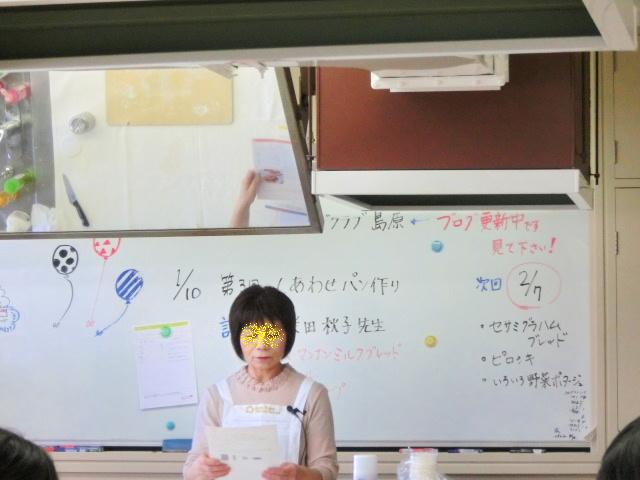 クラブ島原 ← ブログ更新中です
見て下さい!
1/10 第3回 しあわせパン作り
田 秋子先生
マンナンミルクブレッド
プ
次回 2/7
・セサミグラハム
ブレッド
・ピロシキ
・いろいろ野菜ポタージュ